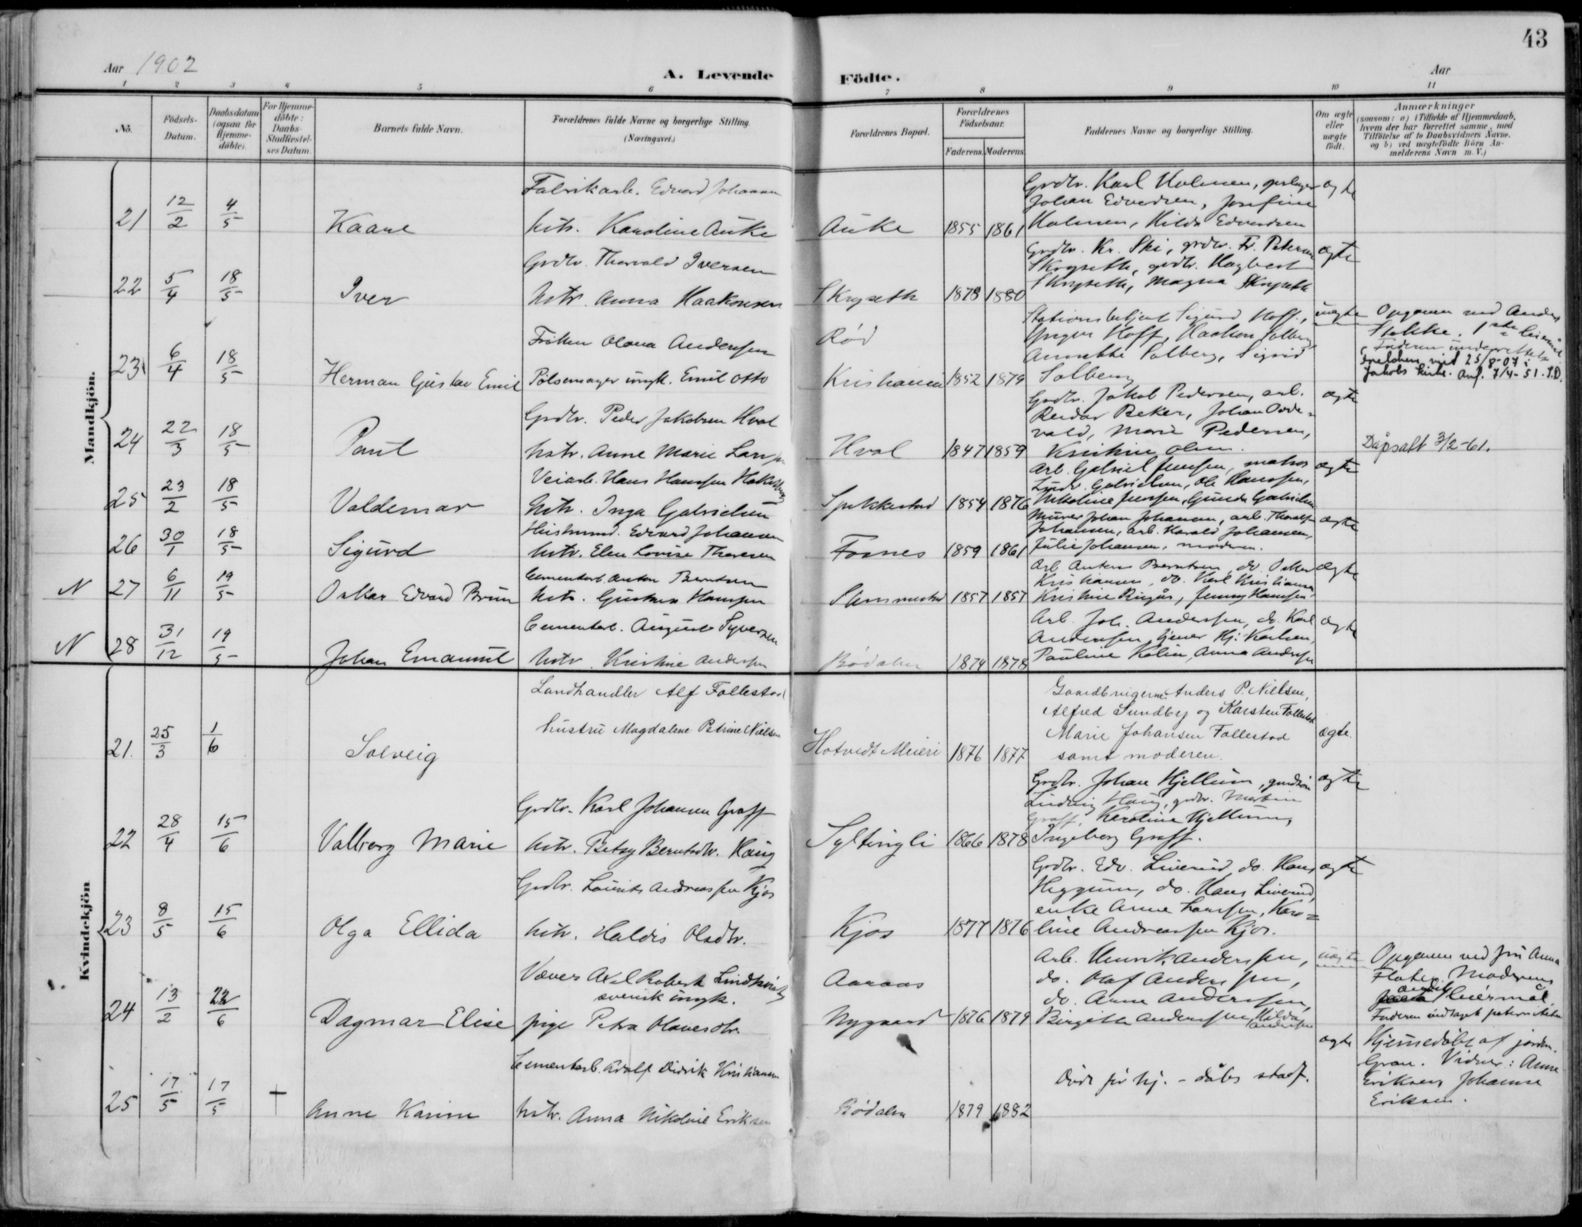 43
Aar 1902
A. Levende Födte.
Aar
1 2 3 4 5 6 7 8 9 10 11
No.
Födsels-Datum.
Daabsdatum (ogsaa for Hjemme-döbte).
For Hjemme-döbte: Daabs-Stadfæstel-ses Datum.
Barnets fulde Navn.
Forældrenes fulde Navne og borgerlige Stilling.
(Næringsvei.)
Forældrenes Bopæl.
Forældrenes Födselsaar.
Faderens. Moderens.
Faddernes Navne og borgerlige Stilling.
Om ægte eller uægte födt.
Anmærkninger
(saasom: a) i Tilfælde af Hjemmedaab, hvem der har forrettet samme, med Tilföielse af to Daabsvidners Navne, og b) ved uægtefödte Börn Anmelderens Navn m. V.)
Mandkjön.
21 12/2 4/5 Kaare
Fabrikarb. Edvard Johansen
hstr. Karoline Auke
Auke 1855 1861
Grdbr. Karl Holmen,
Johan Edvardsen, Josefine
Holmen, Hilda Edvardsen
ægte
22 5/4 18/5 Iver
Grdbr. Thorvald Iversen
hstr. Anna Haakonsen
Skryseth 1878 1880
Grdbr. Kr. Ski, grdbr. Fr. Petersen
Skryseth, grdbr. Hagbart
Skryseth, Magna Skryseth
ægte
23 6/4 18/5 Herman Gustav Emil
Fröken Olava Andersen
Pölsemager ungk. Emil Otto
Röd
Kristiania 1852 1879
Stationsbetjent Sigurd Hoff,
Yngvar Hoff, Haakon Solberg
Annette Solberg, Sigrid
Solberg
uægte
Opgaven ved Anders
Stokke. 1ste Leiermaal
Faderen underrettet
25/8-07 i
Jakobs kirke. Anf. 7/4-51. I.D.
24 22/3 18/5 Paul
Grdbr. Peder Jakobsen Hval
hstr. Anne Marie Larsen
Hval 1847 1859
Grdbr. Jakob Pedersen, arb.
Reidar Beker, Johan Odde-
vald, Marie Pedersen,
Kristine Olsen.
ægte
Dåpsatt 3/2-61.
25 23/2 18/5 Valdemar
Veiarb. Hans Hansen
hstr. Inga Gabrielsen
Spikkestad 1854 1876
Arb. Gabriel Jensen, matros
Gabrielsen, Ole Hansen,
Nikoline Jensen, Gunda Gabrielsen
ægte
26 30/1 18/5 Sigurd
Husmand. Edvard Johansen
hstr. Elen Lovise Thoresen
Fosnes 1859 1861
Murer Johan Johansen, arb. Thorolf
Johansen, arb. Harald Johansen,
Julie Johansen, moderen.
ægte
N 27 6/11 19/5 Oskar Edvard Brun
Cementarb. Anton Berntsen
hstr. Gustava Hansen
1857 1857
Arb. Anton Berntsen, do. Oskar
Kristiansen, do. Karl Kristiansen
Kristine Ringås, Jenny Hansen
ægte
N 28 31/12 19/5 Johan Emanuel
Cementarb. August Syversen
hstr. Kristine Andersen
Bödalen 1874 1878
Arb. Joh. Andersen, do. Karl
Andersen, tjener Hj. Karlsen,
Pauline Kolin, Anna Andersen
ægte
Kvindekjön
21. 25/3 1/6 Solveig
Landhandler Alf Follestad
hustru Magdalene Petrine Nielsen
Hotvedt Meieri 1876 1877
Gaardbrugerne Anders P. Nielsen,
Alfred Sundby og Karsten Follestad
Marie Johansen Follestad
samt moderen.
ægte
22 28/4 15/6 Valborg Marie
Grdbr. Karl Johansen Graff
hstr. Betzy Berntsdtr. Haug
Syltingli 1866 1878
Grdbr. Johan Hjellum,
Ludvig Haug, grdbr. Morten
Graff, Karoline Hjellum,
Ingeborg Graff.
ægte
23 8/5 15/6 Olga Ellida
Grdbr. Laurits Andreassen Kjos
hstr. Haldis Olsdtr.
Kjos 1877 1876
Grdbr. Edv. Liverud, do. Hans
Heggum, do. Hans Liverud,
enke Anne Larsen, Karo=
line Andreassen Kjos.
ægte
24 13/2 22/6 Dagmar Elise
Væver Axel Robert Lindkvist
svensk ungk.
pige Petra Olavesdtr.
Aaraas
Nygaard 1876 1879
Arb. Henrik Andersen,
do. Olaf Andersen,
do. Anne Andersen,
Birgitte Andersen, Hilda Andersen
uægte
Opgaven ved fru Anna
Floten. Moderens
andet leiermål.
Faderen vedtaget paterniteten
25 17/5 17/5 + Anne Karine
Cementarb. Adolf Didrik Kristiansen
hstr. Anna Nikoline Eriksen
Bödalen 1879 1882
Döde för hj.-dåbs stadf.
ægte
Hjemmedöbt af jordm.
Gran. Vidner: Anne
Eriksen, Johanne
Eriksen.